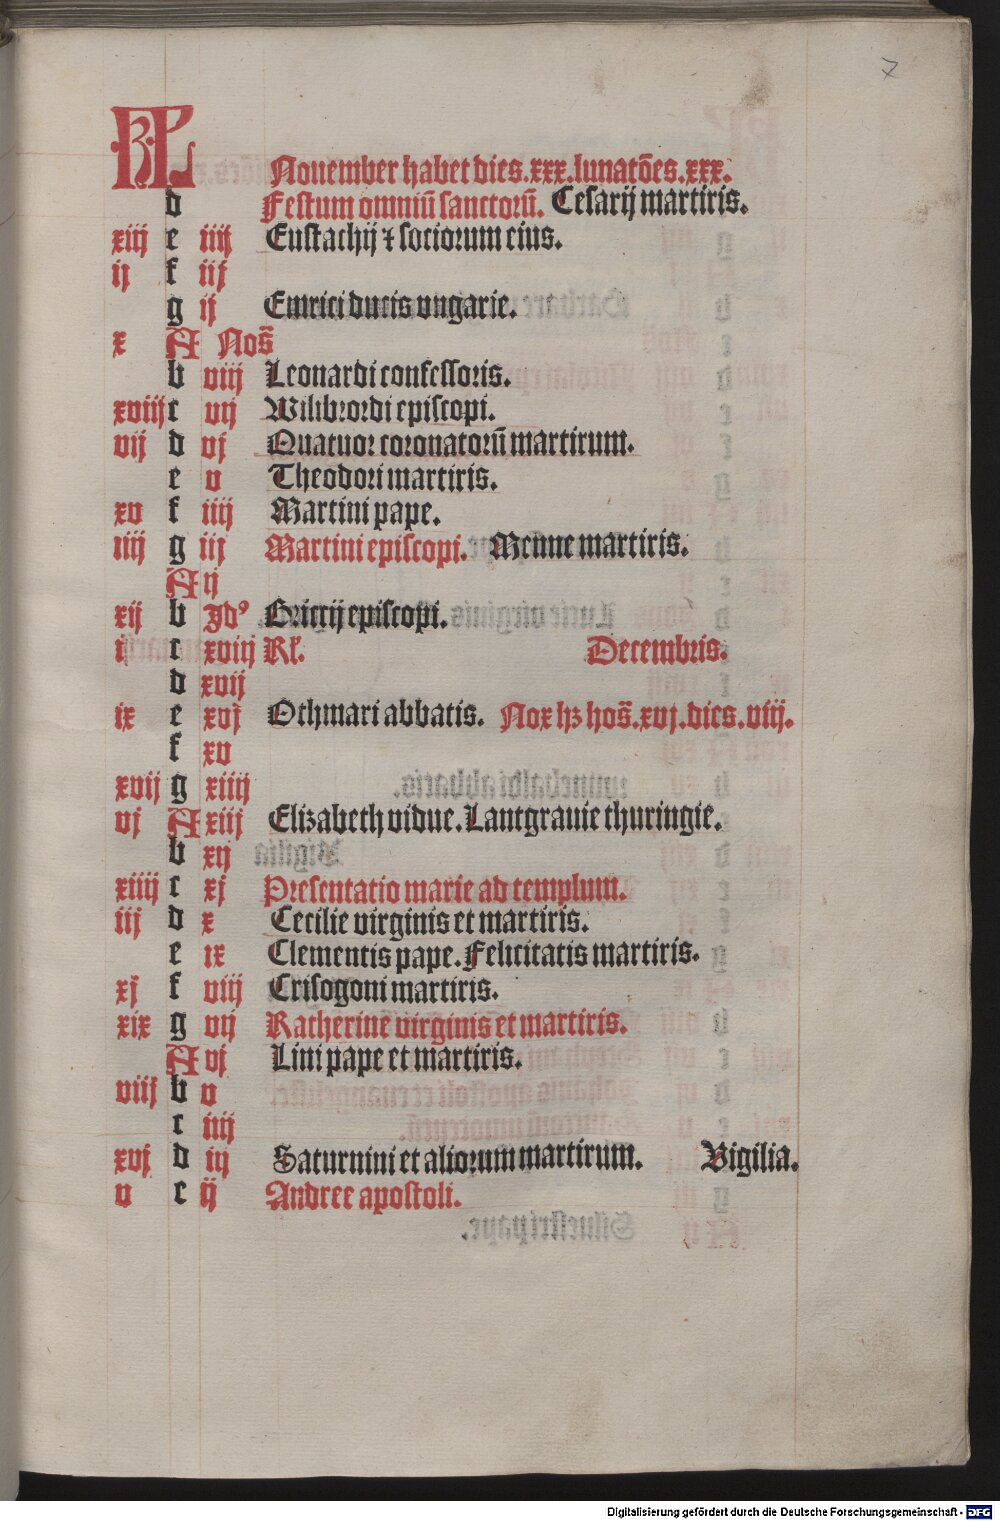 7
KL
Nouember habet dies.xxx.lunatōes.xxx.
d Festum omniū sanctorū. Cesarij martiris.
xiij e iiij Eustachij ⁊ sociorum eius.
ij f iij
g ij Emrici ducis vngarie.
x A Noſ̄
b viij Leonardi confessoris.
xviij c vij Wilibrordi episcopi.
vij d vj Quatuor coronatorū martirum.
e v Theodori martiris.
xv f iiij Martini pape.
iiij g iij Martini episcopi. Menne martiris.
A ij
xij b Jdꝰ Briccij episcopi.
i c xviij Kƚ. Decembris.
d xvij
ix e xvj Othmari abbatis. Nox hꝫ hoſ̄.xvj.dies.viij.
f xv
xvij g xiiij
vj A xiij Elizabeth vidue. Lantgrauie thuringie.
b xij
xiiij c xj Presentatio marie ad templum.
iij d x Cecilie virginis et martiris.
e ix Clementis pape. Felicitatis martiris.
xj f viij Crisogoni martiris.
xix g vij Katherine virginis et martiris.
A vj Lini pape et martiris.
viij b v
c iiij
xvj d iij Saturnini et aliorum martirum. Vigilia.
v e ij Andree apostoli.
Digitalisierung gefördert durch die Deutsche Forschungsgemeinschaft - DFG